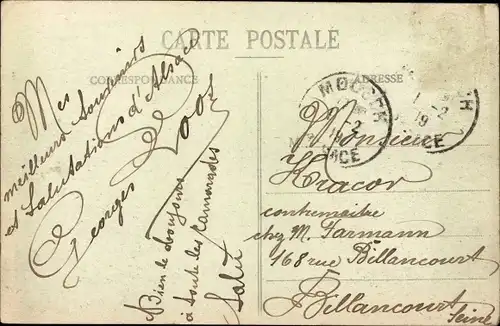 CARTE POSTALE
CORRESPONDANCE
ADRESSE
Mes
meilleurs souvenirs
et Salutations d'Alsace
Georges Loos
Bien le bonjour
à toute les Camarades
Salut
MOOSCH
Monsieur
Kracor
contremaitre
chez M. Farmann
168 rue Billancourt
Billancourt
Seine